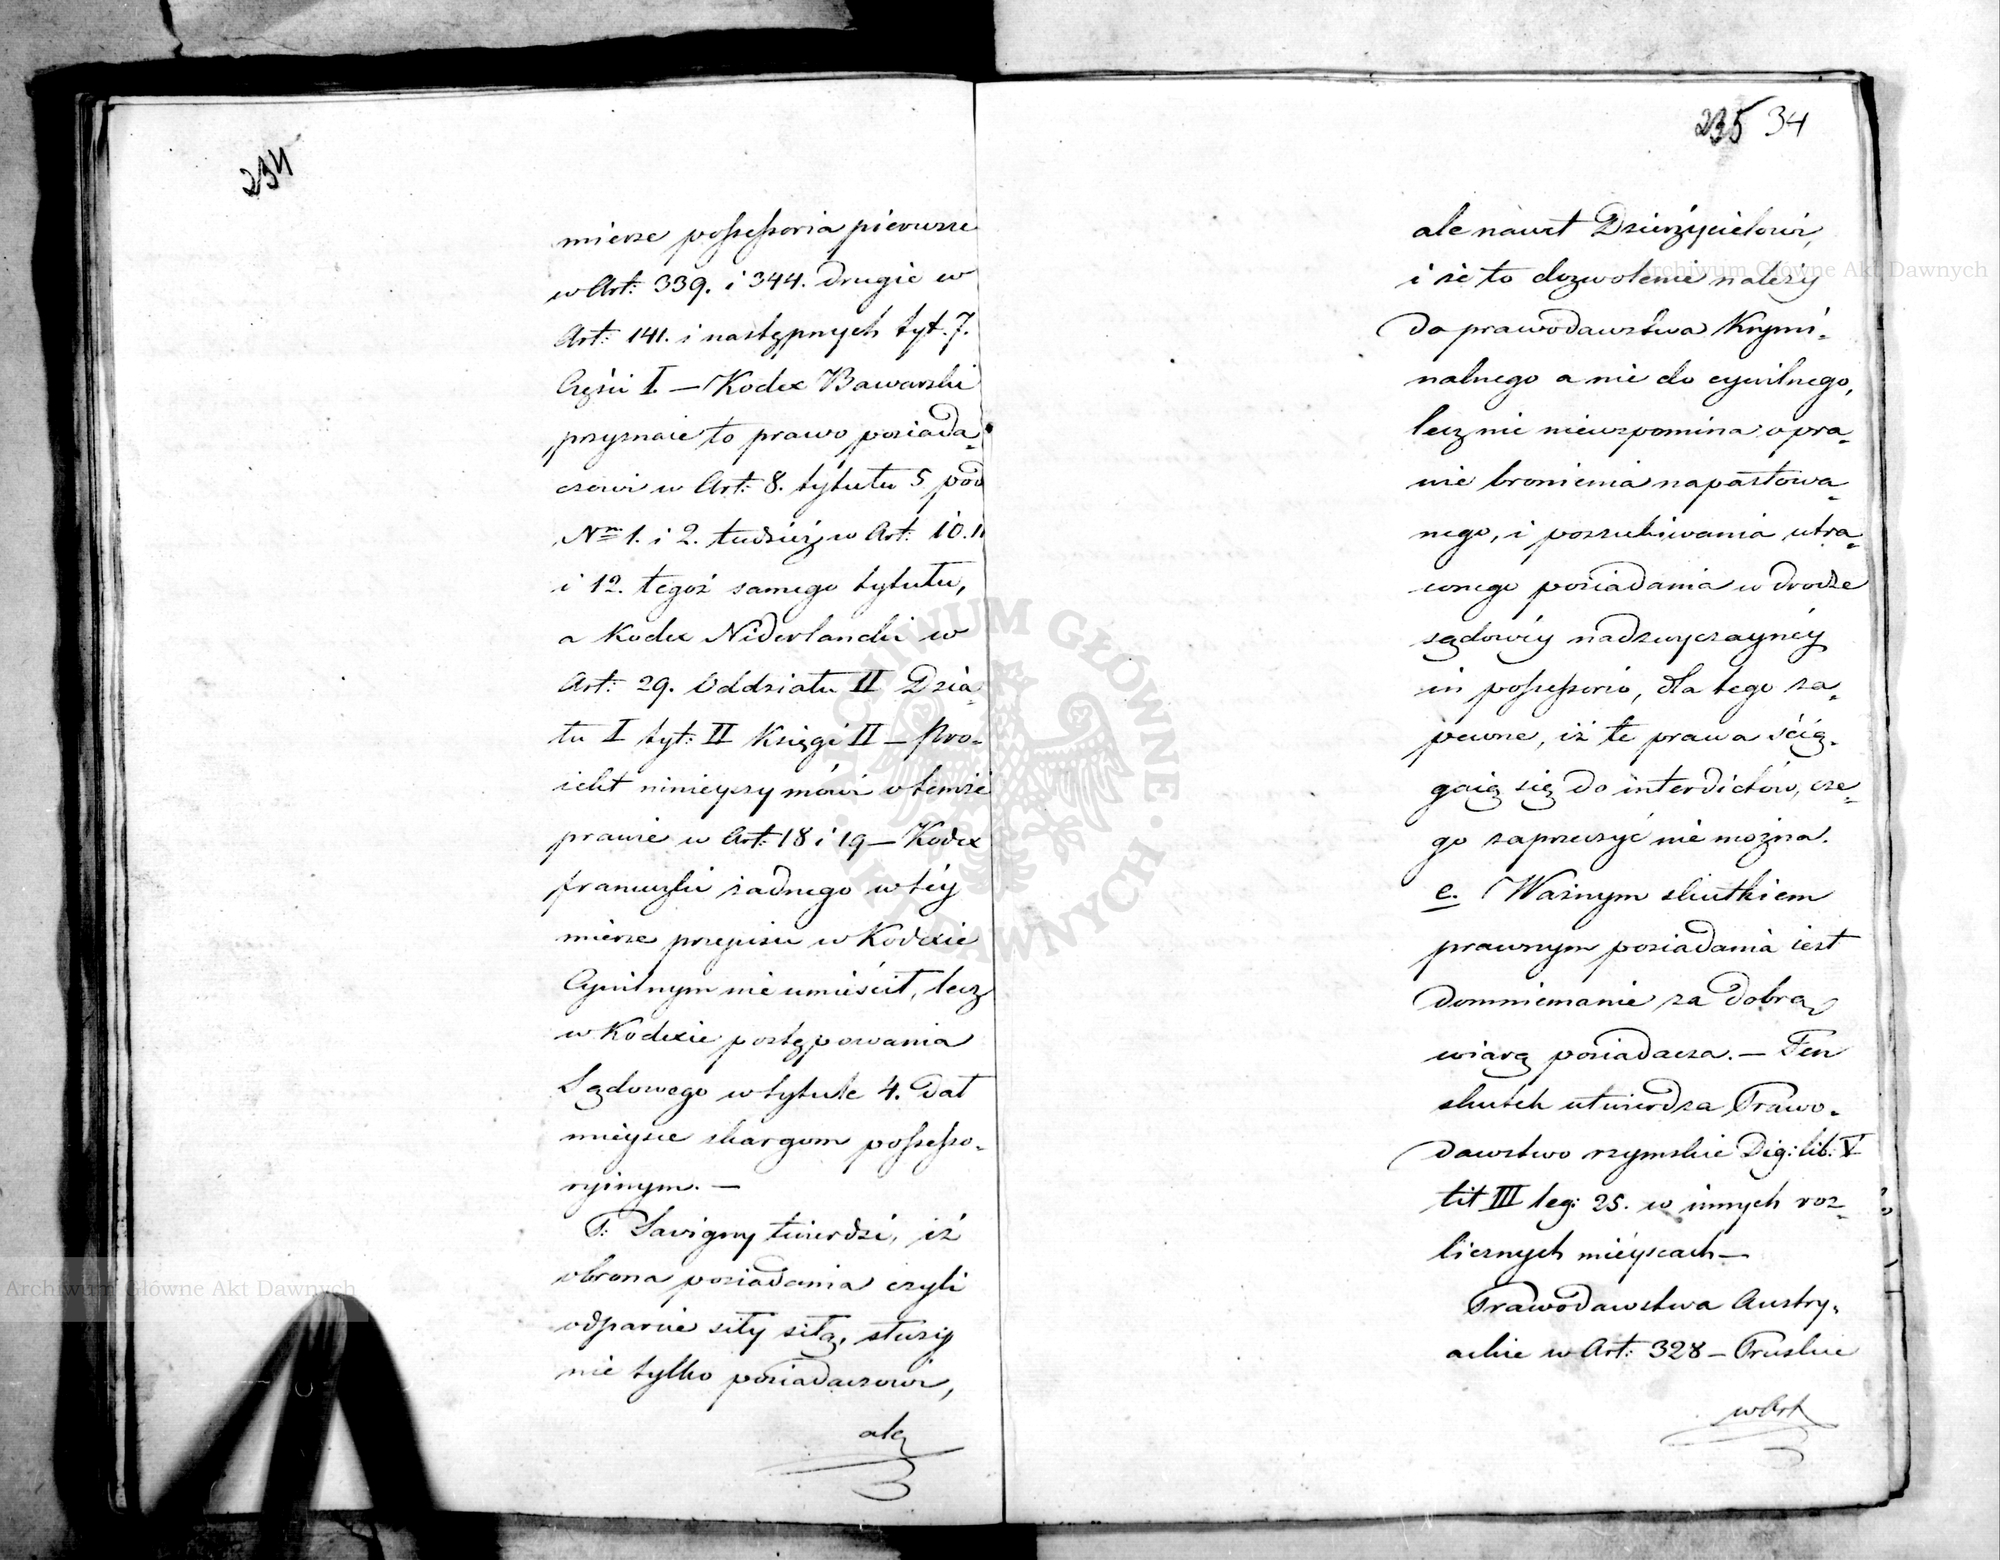 234
mierze possessoria pierwsze
w Art: 339. i 344. drugie w
Art: 141. i następnych tyt. 7.
Części I. — Kodex Bawarski
przyznaie to prawo posiada-
czowi w Art: 8. tytułu 5 pod
Nrm 1. i 2. tudzież w Art: 10. 11
i 12. tegoż samego tytułu,
a Kodex Niderlandzki w
Art: 29. Oddziału II Dzia-
łu I tyt: II Księgi II — Pro-
iekt ninieyszy mówi o temże
prawie w Art: 18 i 19 — Kodex
francuzki żadnego w téy
mierze przepisu w Kodexie
Cywilnym nie umieścił, lecz
w Kodexie postępowania
Sądowego w tytule 4. dał
mieysce skargom possesso-
ryinym. —
P. Savigny twierdzi, iż
obrona posiadania czyli
odparcie siły siłą, służy
nie tylko posiadaczowi,
ale
235 34
ale nawet Dzierżycielowi,
i że to dozwolenie należy
do prawodawstwa Krymi-
nalnego a nie do cywilnego,
lecz nic niewspomina o pra-
wie bronienia napastowa-
nego, i poszukiwania utra-
conego posiadania w drodze
sądowéy nadzwyczaynéy
in possessorio, dla tego za-
pewne, iż te prawa ścią-
gaią się do interdictów, cze-
go zaprzeczyć nie można.
e. Ważnym skutkiem
prawnym posiadania iest
domniemanie za dobrą
wiarą posiadacza. — Ten
skutek utwierdza Prawo-
dawstwo rzymskie Dig: lib: V
tit III leg: 25. w innych roz-
licznych mieyscach —
Prawodawstwa Austry-
ackie w Art: 328 — Pruskie
w Art
Archiwum Główne Akt Dawnych
Archiwum Główne Akt Dawnych
ARCHIWUM GŁÓWNE AKT DAWNYCH